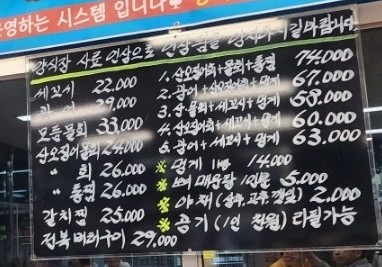 운영하는 시스템 입니다
양식장 사료 인상으로 인상됨을 양식하시길 바랍니다
세꼬시 22,000
광어 29,000
모듬물회 33,000
산오징어물회 24,000
〃 회 26,000
〃 통찜 26,000
갈치찜 25,000
전복버터구이 29,000
1. 산오징어회+물회+통찜 74,000
2. 광어+산오징어+멍게 67,000
3. 산물회+세꼬시+멍게 58,000
4. 산오징어+세꼬시+멍게 60,000
5. 광어+세꼬시+멍게 63,000
※ 멍게 1kg 14,000
※ 뼈매운탕 1인분 5,000
※ 야채 (상추,고추,깻잎) 2,000
※ 공기 (1인 천원) 리필가능